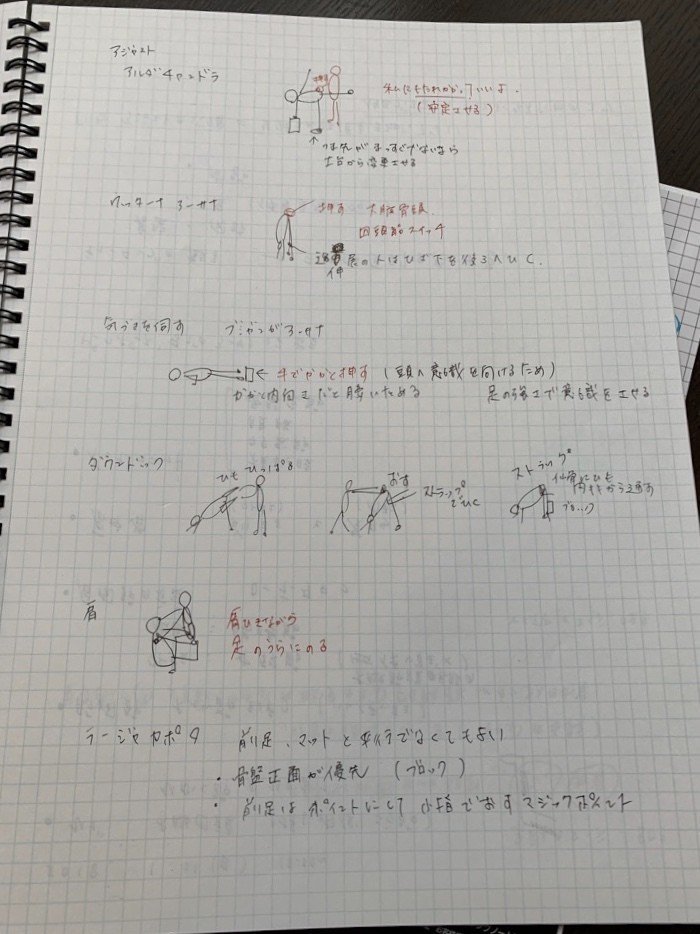 アジャスト
アルダチャンドラ
押す
私にもたれかかっていいよ.
(安定させる)
↑ つま先がまっすぐでないなら
土台から変更させる
ウッターナアーサナ
押す 大腿骨頭
回旋筋スイッチ
過伸展の人はひざ下を後ろへひく.
気づきを伺す ブジャンガアーサナ
← 手でかかと押す (頭へ意識を向けるため)
かかと内向きだと腰いためる 足の強さで意識をさせる
ダウンドック
ひも ひっぱる
おす
ストラップでひく
ストラップ
仙骨にひも
内ももから通す
ブロック
肩
肩ひきながら
足のうらにのる
ラージャカポタ 前足、マットと平行でなくてもよい
・骨盤正面が優先 (ブロック)
・前足はポイントにして 小指でおす マジックポイント